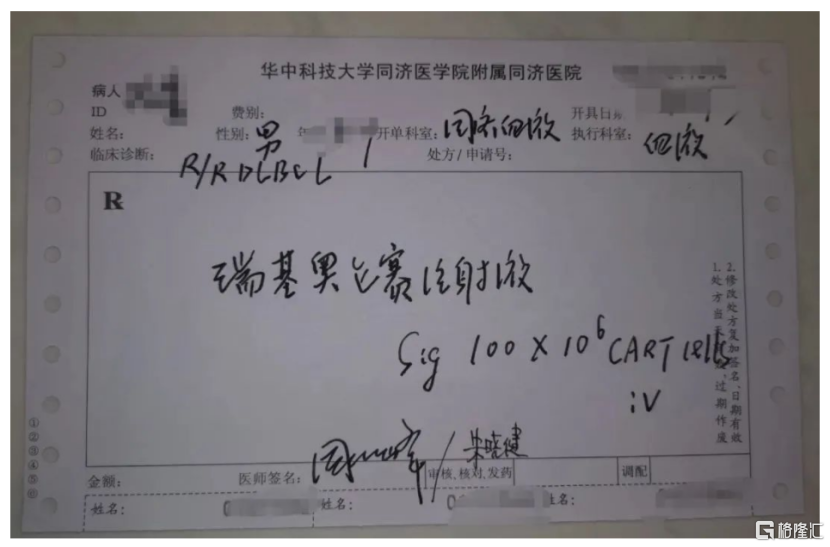 华中科技大学同济医学院附属同济医院
病人
ID 费别: 开具日
姓名: 性别: 男 开单科室: 执行科室: 血液
临床诊断: R/R DLBCL 处方/申请号:
R
瑞基奥仑赛注射液
Sig 100 X 10⁶ CART cells
iV
2.修改处方复加签名、日期有效
1.处方当 过期作废
①②③④⑤⑥
金额: 医师签名: / 朱晓健 审核、核对、发药 调配
姓名: 姓名: 姓名:
格隆汇